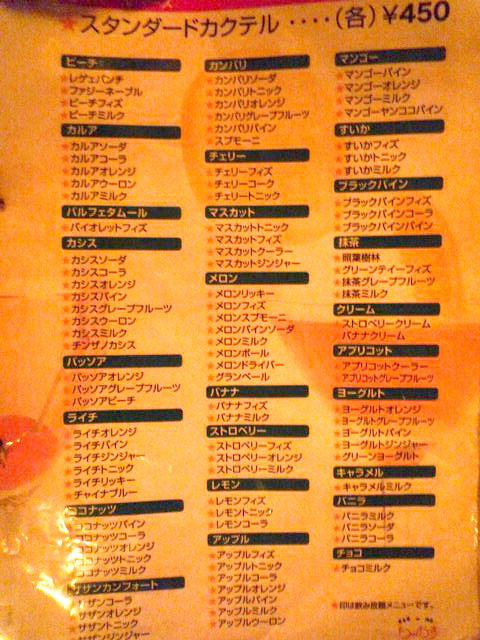 ★スタンダードカクテル ‥‥(各)¥450
ピーチ
★レゲエパンチ
★ファジーネーブル
★ピーチフィズ
★ピーチミルク
カルア
★カルアソーダ
★カルアコーラ
★カルアオレンジ
★カルアウーロン
★カルアミルク
パルフェタムール
★バイオレットフィズ
カシス
★カシスソーダ
★カシスコーラ
★カシスオレンジ
★カシスパイン
★カシスグレープフルーツ
★カシスウーロン
★カシスミルク
★チンザノカシス
パッソア
★パッソアオレンジ
★パッソアグレープフルーツ
★パッソアピーチ
ライチ
★ライチオレンジ
★ライチパイン
★ライチジンジャー
★ライチトニック
★ライチリッキー
★チャイナブルー
ココナッツ
ココナッツパイン
ココナッツコーラ
ココナッツオレンジ
ココナッツトニック
ココナッツミルク
サザンカンフォート
サザンコーラ
サザンオレンジ
サザントニック
サザンジンジャー
カンパリ
★カンパリソーダ
★カンパリトニック
★カンパリオレンジ
★カンパリグレープフルーツ
★カンパリパイン
★スプモーニ
チェリー
★チェリーフィズ
★チェリーコーク
★チェリートニック
マスカット
★マスカットトニック
★マスカットフィズ
★マスカットクーラー
★マスカットジンジャー
メロン
★メロンリッキー
★メロンフィズ
★メロンスプモーニ
★メロンパインソーダ
★メロンミルク
★メロンボール
★メロンドライバー
★グランベール
バナナ
★バナナフィズ
★バナナミルク
ストロベリー
★ストロベリーフィズ
★ストロベリーオレンジ
★ストロベリーミルク
レモン
★レモンフィズ
★レモントニック
★レモンコーラ
アップル
★アップルフィズ
★アップルトニック
★アップルコーラ
★アップルオレンジ
★アップルパイン
★アップルミルク
★アップルウーロン
マンゴー
★マンゴーパイン
★マンゴーオレンジ
★マンゴーミルク
★マンゴーヤンココパイン
すいか
★すいかフィズ
★すいかトニック
★すいかミルク
ブラックパイン
★ブラックパインフィズ
★ブラックパインコーラ
★ブラックパインパイン
抹茶
★照葉樹林
★グリーンティーフィズ
★抹茶グレープフルーツ
★抹茶ミルク
クリーム
ストロベリークリーム
バナナクリーム
アプリコット
★アプリコットクーラー
★アプリコットグレープフルーツ
ヨーグルト
★ヨーグルトオレンジ
★ヨーグルトグレープフルーツ
★ヨーグルトパイン
★ヨーグルトジンジャー
★グリーンヨーグルト
キャラメル
★キャラメルミルク
バニラ
★バニラミルク
★バニラソーダ
★バニラコーラ
チョコ
★チョコミルク
★印は飲み放題メニューです。